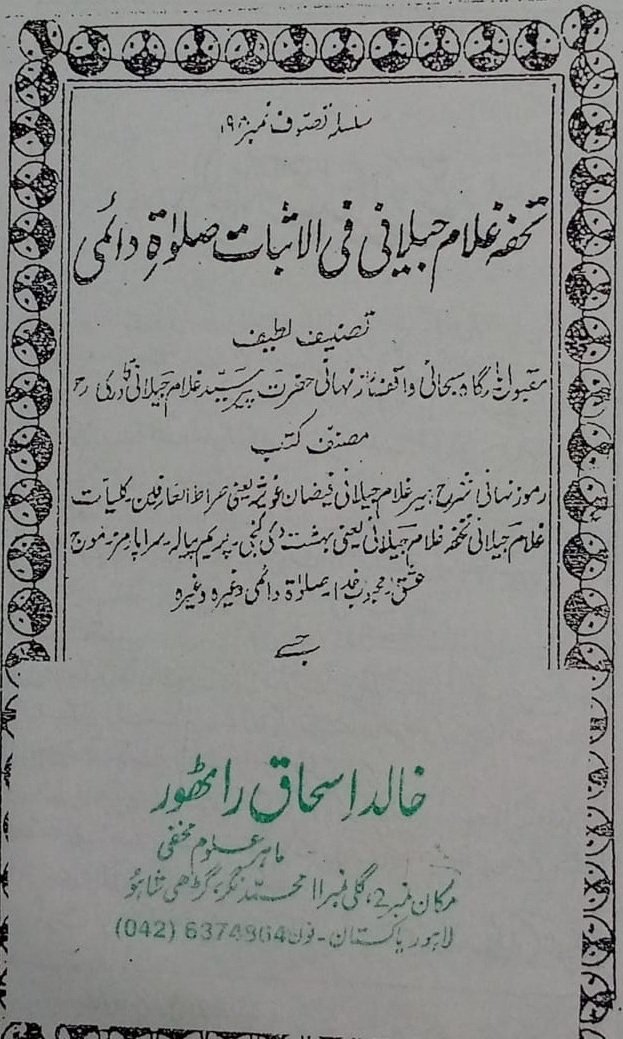 سلسلہ تصوف نمبر ۱۹۸
تحفہ غلام جیلانی فی الاثبات صلوٰۃِ دائمی
تصنیف لطیف
مقبول درگاہ سبحانی واقف راز نہانی حضرت پیر سید غلام جیلانی قادری رح
مصنف کتب
رموز نہانی شرح پیر غلام جیلانی فیضان غوثیہ یعنی صراط العارفین۔ کلیات
غلام جیلانی تحفہ غلام جیلانی یعنی بہشت دی کنجی۔ پریم پیالہ۔ سراپا مرز موج
عشق محبوب خدا۔ صلوٰۃ دائمی وغیرہ وغیرہ
جسے
خالد اسحاق راٹھور
ماہر علوم مخفی
مکان نمبر 2، گلی نمبر 11 محمد نگر، گڑھی شاہو
لاہور پاکستان - فون 6374864 (042)